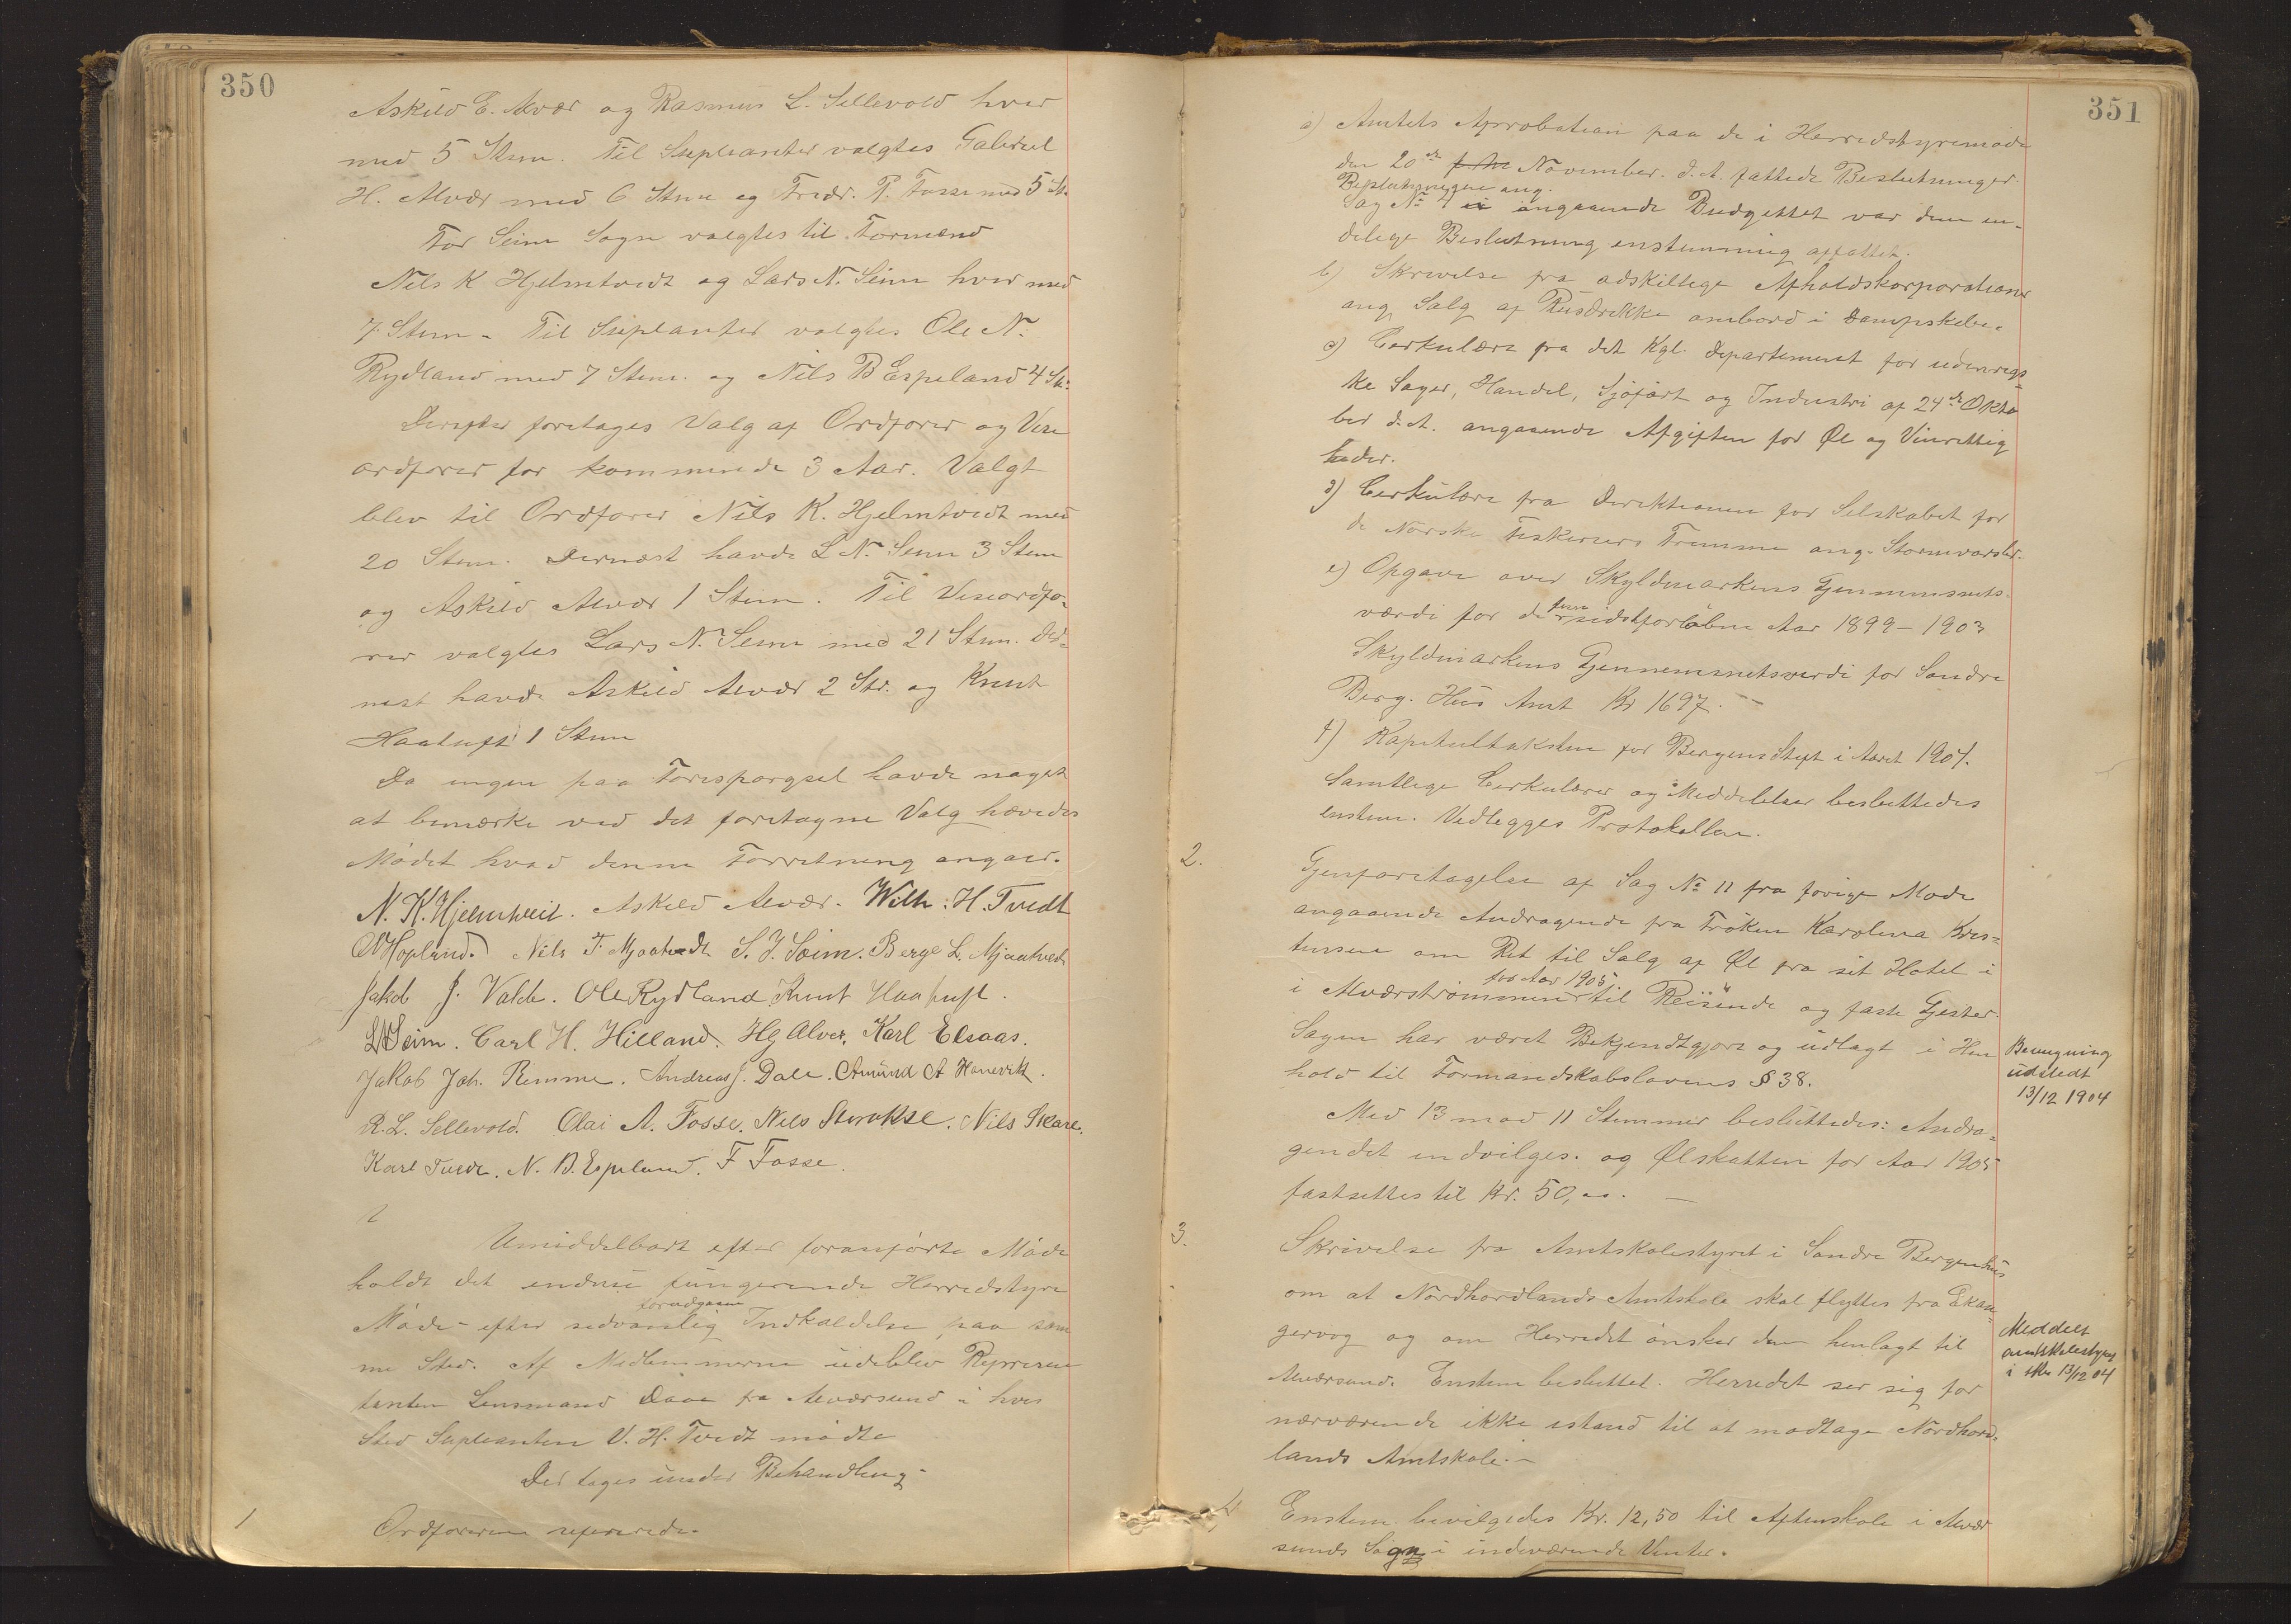 350
Askild E. Alvær og Rasmus L. Sellevold hver
med 5 Stem. Til Supleanter valgtes Gabriel
H. Alvær med 6 Stem og Fredr. P. Fosse med 5 St.
For Seim Sogn valgtes til Formænd
Nils K Hjelmtvedt og Lars N. Seim hver med
7 Stem - Til Suplanter valgtes Ole N.
Rydland med 7 Stem. og Nils B Espeland 4 St.
Derefter foretages Valg af Ordfører og Vise
ordfører for kommende 3 Aar. Valgt
blev til Ordfører Nils K. Hjelmtvedt med
20 Stem. Dernæst havde L N. Seim 3 Stem
og Askild Alvær 1 Stem. Til Viseordfø-
rer valgtes Lars N. Seim med 21 Stem. Der-
nest havde Askild Alvær 2 St. og Knut
Haatuft 1 Stem
Da ingen paa Forespørgsel havde noget
at bemærke ved det foretagne Valg hævedes
Mödet hvad denne Forretning angaar.
N. K. Hjelmtveit. Askild Alvær. Wilh: H. Tvedt
Hopland. Nils T. Mjaatvedt S. J. Seim. Berge L. Mjaatvedt
Jakob J. Valde. Ole Rydland Knut Haatuft.
LNSeim. Carl H. Hilland. HG Alver, Karl Elsaas.
Jakob Joh. Remme. Andreas J. Dale. Amund A Hanevik.
R. L. Sellevold. Olai A. Fosse, Nils Skare.
Karl Tvedt. N. B. Espeland. F Fosse.
Umiddelbart efter foranførte Möde
holdt det endnu fungerende Herredstyre
foregaaen
Möde - efter sedvanlig Indkaldelse paa sam
me Sted. Af Medlemmerne udeblev Repræsen
tanten Lensmand Daae fra Alværsund i hvis
Sted Supleanten V. H. Tvedt mödte
Der toges under Behandling -
1 Ordføreren refererede.
351
a) Amtets Aprobation paa de i Herredstyremøde
den 20de November. d. A. fattede Beslutninger
Beslutningene ang.
Sag No 4 angaaende Budgettet var dem en-
delige Beslutning enstemmig affattet.
b) Skrivelse fra adskillige Afholdskorporationer
ang Salg af Rusdrikke ombord i Dampskibe.
c) Cerkulære fra det Kgl. Departement for udenrigs-
ke Sager, Handel, Sjøfart og Industri af 24de Okto
ber d. A. angaaende Afgiften for Øl og Vinrettig
heder.
d) Cerkulære fra Direktionen for Selskabet for
de Norske Fiskeriers Fremme ang. Stormvarsler.
e) Opgave over Skyldmarkens Gjennemsnits-
fem
værdi for de sidstforløbne Aar 1899-1903
Skyldmarkens Gjennemsnetsverdi for Søndre
Berg. Hus Amt Kr 1697. -
f) Kapitultaksten for Bergens Stift i Aaret 1904.
Samtlige Cerkulærer og Meddelelser besluttedes
enstem. Vedlegges Protokollen.
2. Gjenforetagelse af Sag No 11 fra forige Møde
angaaende Andragende fra Frøken Karolina Kris-
tensen om Ret til Salg af Øl fra sit Hotel i
for Aar 1905
i Alværstrømmen til Reisende og faste Gjester.
Sagen har været Bekjendtgjort og udlagt i Hen
hold til Formandskabslovens § 38.
Bevegning
udstedt
13/12 1904
Med 13 mod 11 Stemmer besluttedes: Andra-
gendet indvilges. og Ølskatten for Aar 1905
fastsettes til Kr. 50,00. -
3. Skrivelse fra Amtskolestyret i Søndre Bergenhus
om at Nordhordlands Amtskole skal flyttes fra Ekan-
gervog og om Herredet ønsker den henlagt til
Alværsund. Enstem besluttet. Herredet ser sig for
nærværende ikke istand til at modtage Nordhord-
lands Amtskole. -
Meddelt
amtskolestyret
i skr 13/12 04
4. Enstem bevilgedes Kr. 12,50 til Aftenskole i Alvær
sunds Sogn i indeværende Vinter.